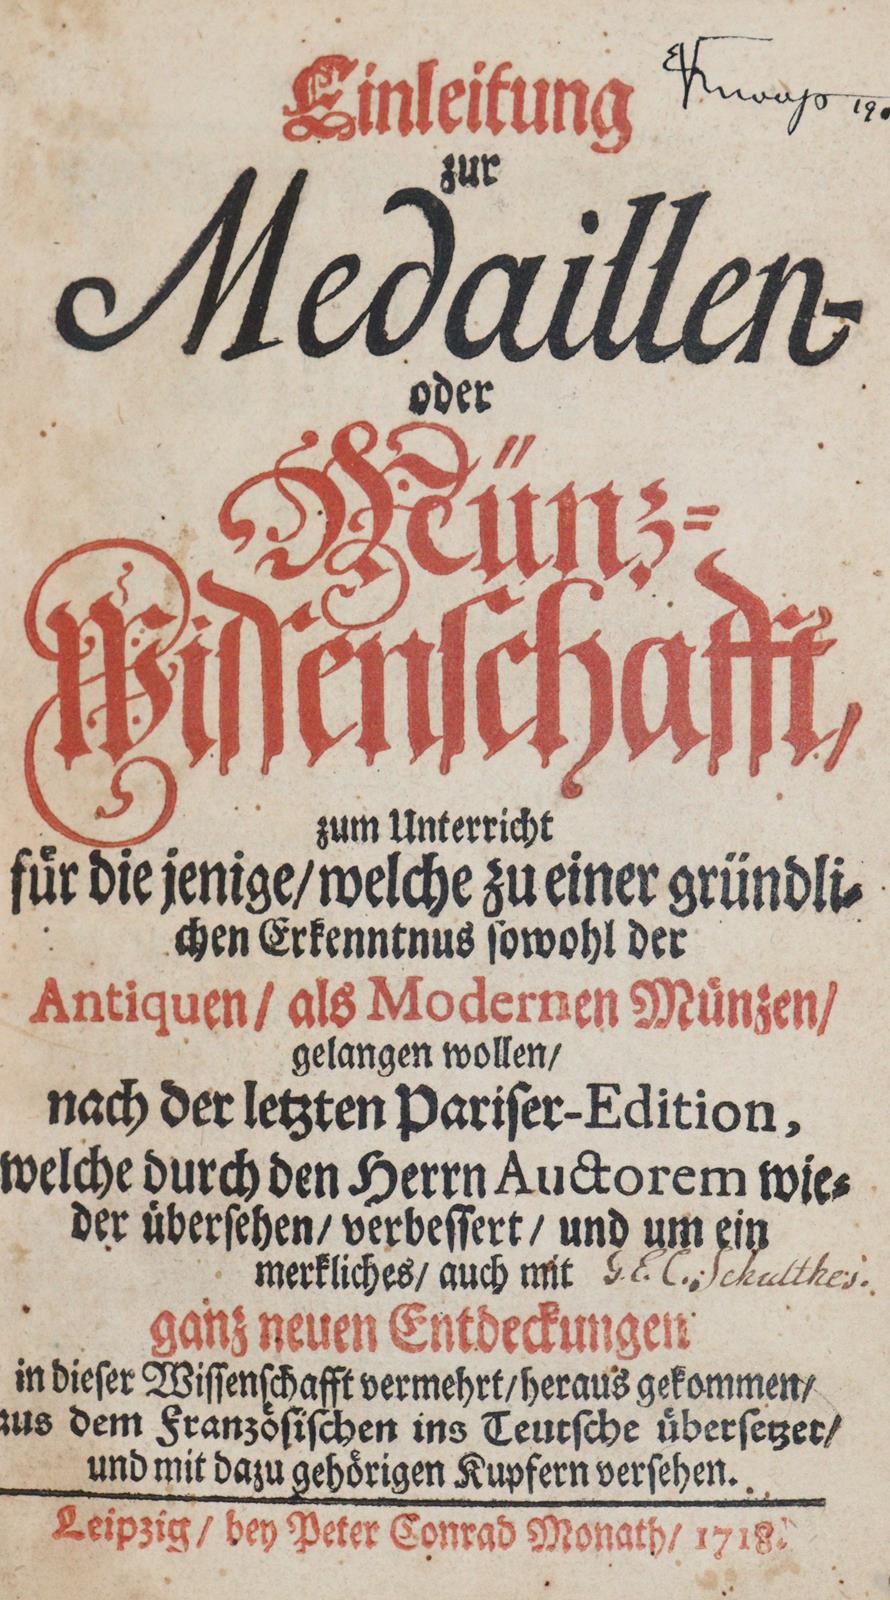 Einleitung
zur
Medaillen-
oder
Münz-
Wissenschafft,
zum Unterricht
für die jenige/ welche zu einer gründli-
chen Erkenntnus sowohl der
Antiquen/ als Modernen Münzen/
gelangen wollen/
nach der letzten Pariser-Edition,
welche durch den Herrn Auctorem wie-
der übersehen/ verbessert/ und um ein
merkliches/ auch mit G. E. C. Schulthes.
ganz neuen Entdeckungen
in dieser Wissenschafft vermehrt/ heraus gekommen/
aus dem Französischen ins Teutsche übersetzet/
und mit dazu gehörigen Kupfern versehen.
Leipzig/ bey Peter Conrad Monath/ 1718.